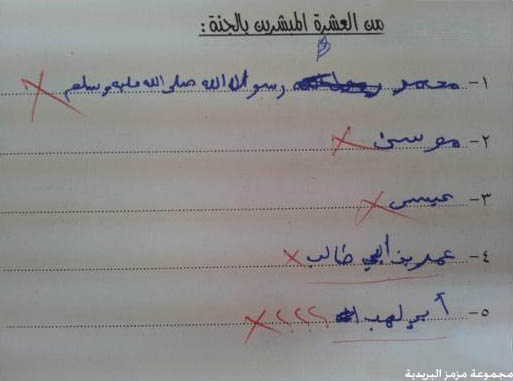 من العشرة المبشرين بالجنة :
١- محمد رسول الله صلى الله عليه وسلم
٢- موسى
٣- عيسى
٤- عمر بن أبي طالب
٥- أبي لهب ؟؟؟؟
مجموعة مزمز البريدية